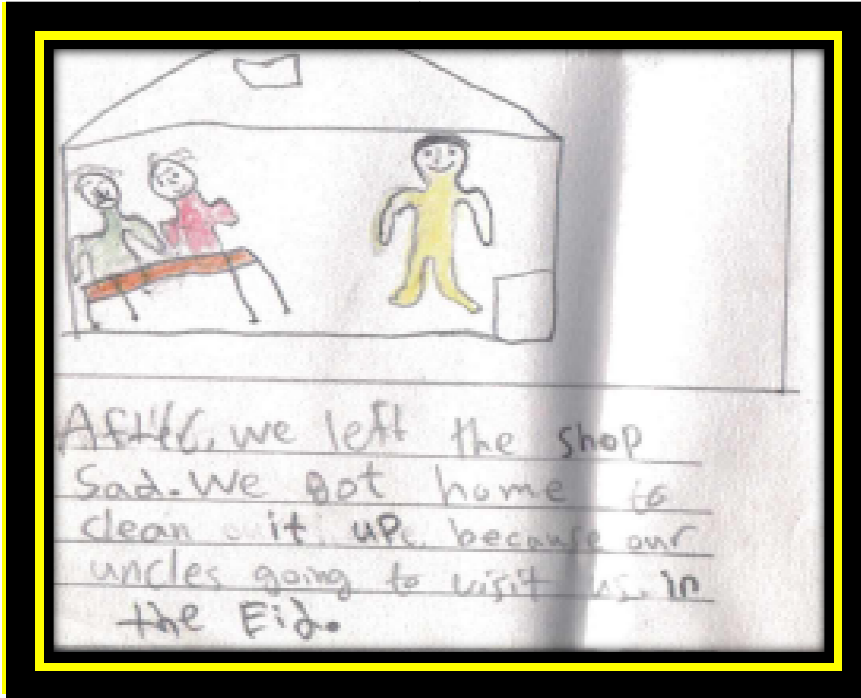 After, we left the shop
Sad. We got home to
clean it up, because our
uncles going to visit us in
the Eid.